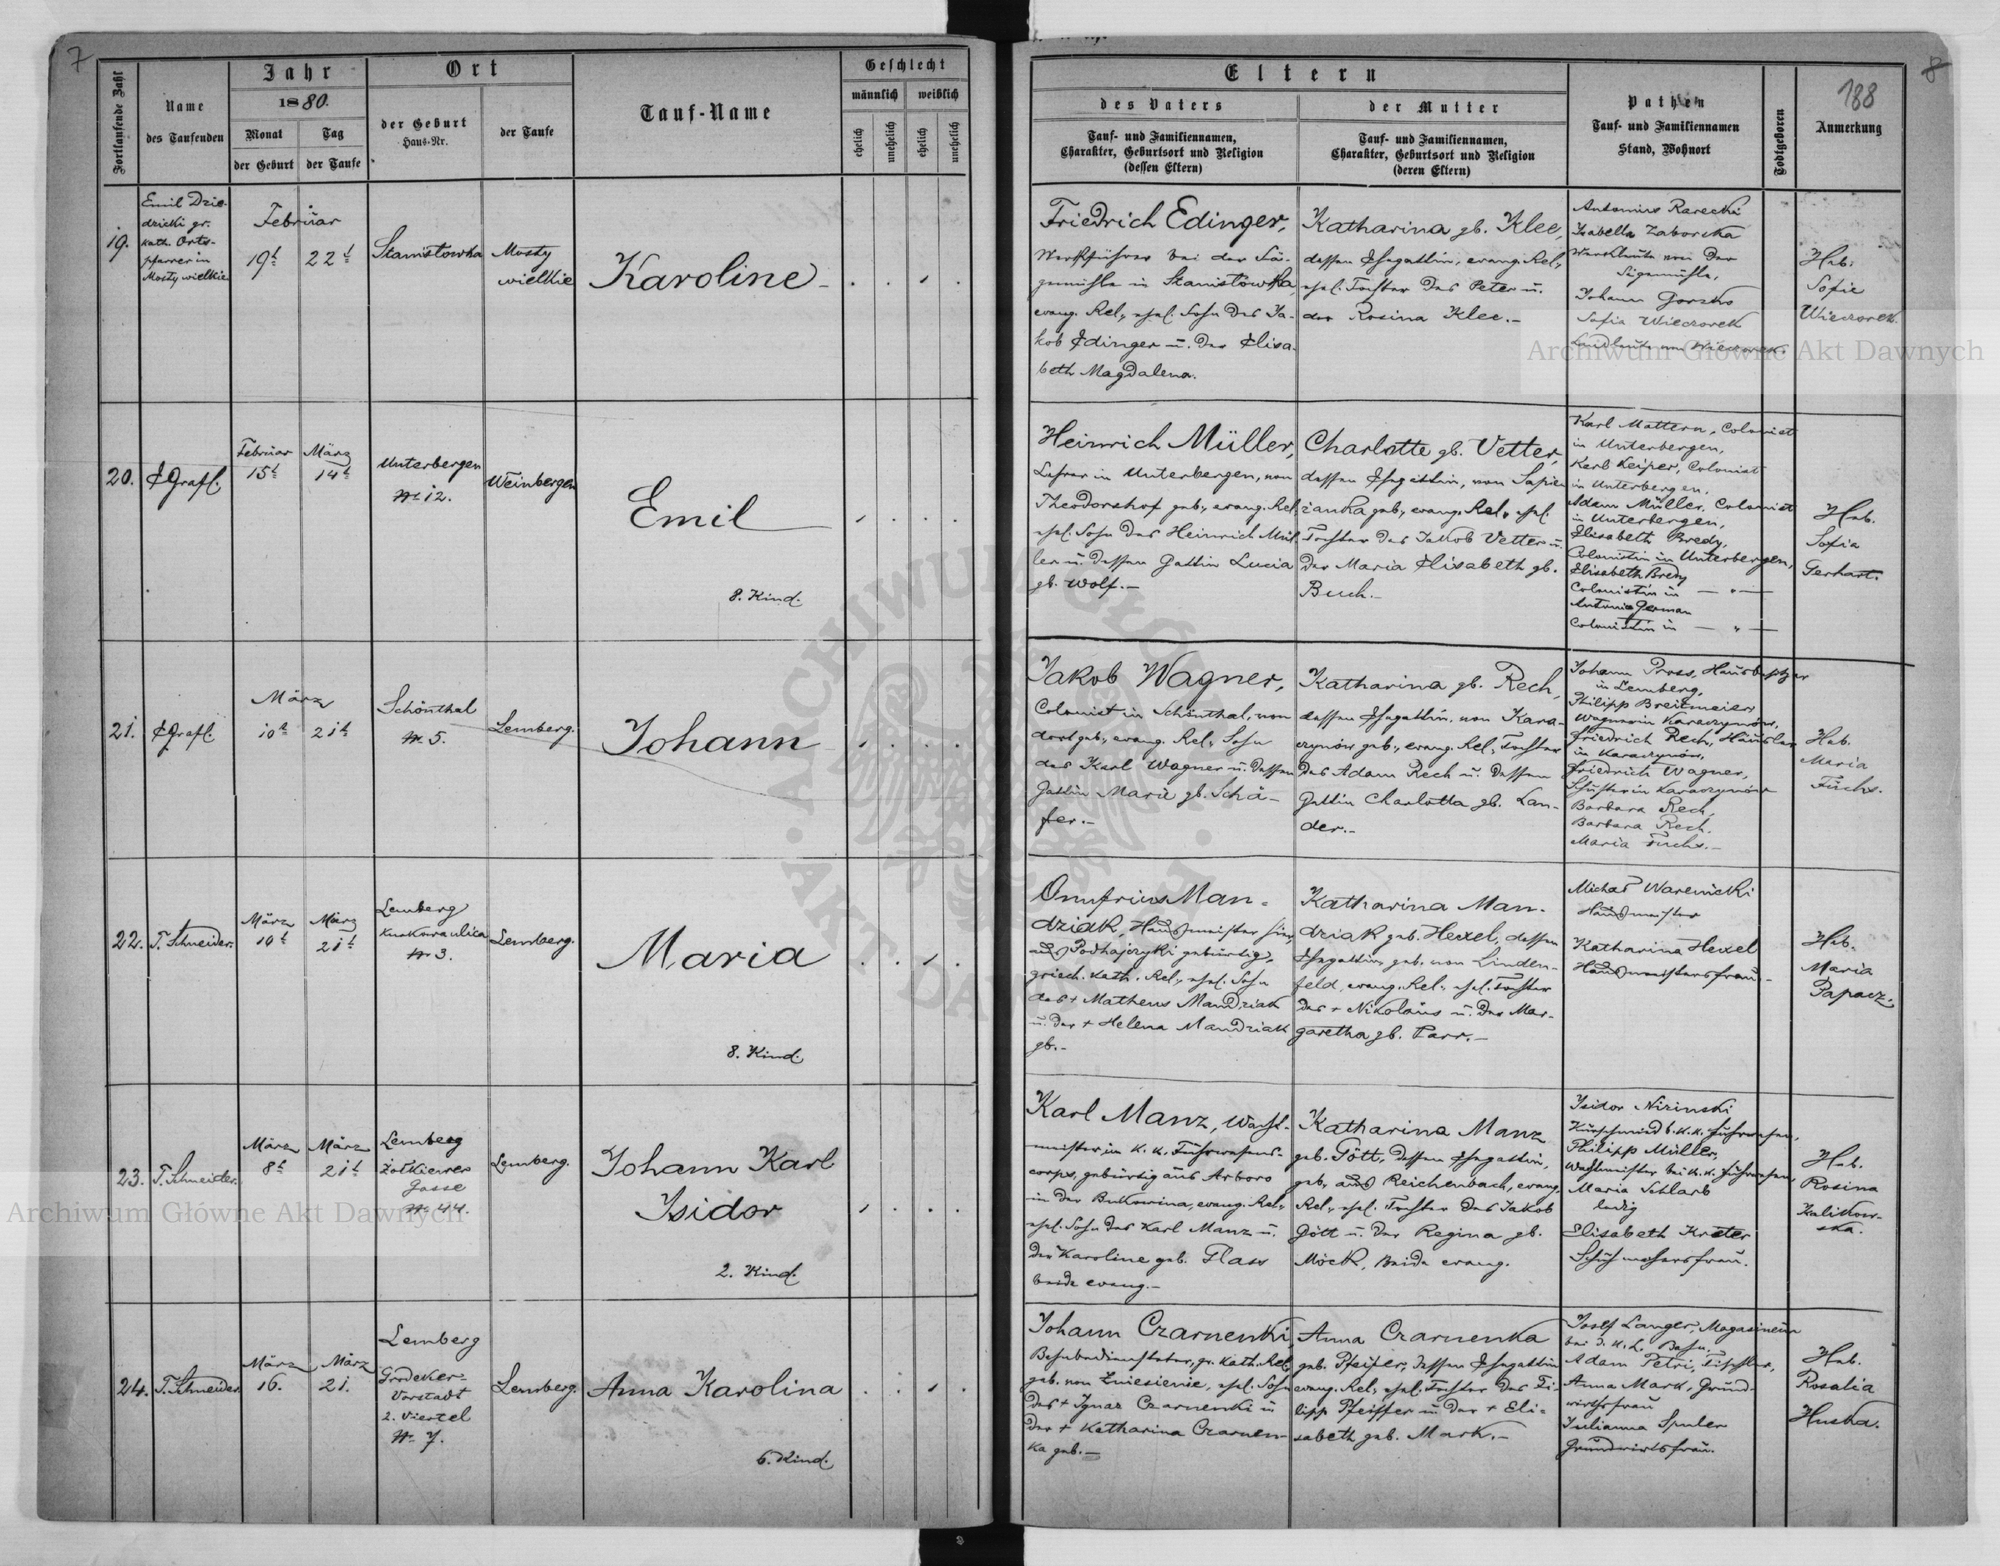 7
Fortlaufende Zahl
Name
des Taufenden
Jahr
1880.
Monat
der Geburt
Tag
der Taufe
Ort
der Geburt
Haus-Nr.
der Taufe
Tauf-Name
Geschlecht
männlich
weiblich
ehelich
unehelich
ehelich
unehelich
19.
Emil Dzie-
dzicki gr.
kath. Orts-
pfarrer in
Mosty wielkie
Februar
19t
22t
Stanisłowka
Mosty
wielkie
Karoline
20.
E Grafl.
Februar
15t
März
14t
Unterbergen
Nr 12.
Weinbergen
Emil
8. Kind.
21.
E Grafl.
März
10t
21t
Schönthal
Nr 5.
Lemberg.
Johann
22.
T. Schneider.
März
14t
März
21t
Lemberg
Nr 3.
Lemberg.
Maria
8. Kind.
23.
T. Schneider.
März
8t
März
21t
Lemberg
Żołkiewer
Gasse
Nr 44.
Lemberg.
Johann Karl
Isidor
2. Kind.
24.
T. Schneider.
März
16.
März
21.
Lemberg
Grodeker-
Vorstadt
2. Viertel
Nr 7.
Lemberg.
Anna Karolina
6. Kind.
8
188
Eltern
des Vaters
Tauf- und Familiennamen,
Charakter, Geburtsort und Religion
(dessen Eltern)
der Mutter
Tauf- und Familiennamen,
Charakter, Geburtsort und Religion
(deren Eltern)
Pathen
Tauf- und Familiennamen
Stand, Wohnort
Todtgeboren
Anmerkung
Friedrich Edinger,
Werkführer bei der Sä-
gemühle in Stanisłowka,
evang. Rel., ehel. Sohn des Ja-
kob Edinger u. der Elisa-
beth Magdalena.
Katharina gb. Klee,
dessen Ehegattin, evang. Rel.,
ehel. Tochter des Peter u.
der Rosina Klee.-
Antonius Rarecki
Isabella Zaborska
Werksleute von der
Sägemühle,
Johann Gorzko
Sofia Wieczorek
Heb.
Sofie
Wieczorek.
Heinrich Müller,
Lehrer in Unterbergen, von
Theodorshof geb., evang. Rel.
ehel. Sohn des Heinrich Mül-
ler u. dessen Gattin Lucia
gb. Wolf.-
Charlotte gb. Vetter,
dessen Ehegattin, von Sapie-
żanka geb., evang. Rel., ehel.
Tochter des Jakob Vetter u.
der Maria Elisabeth gb.
Buch.-
Karl Mattern, Colonist
in Unterbergen,
Karl Keiper, Colonist
in Unterbergen,
Adam Müller, Colonist
in Unterbergen,
Elisabeth Bredy,
Colonistin in Unterbergen,
Elisabeth Bredy
Colonistin in — „ —
Antonia German
Colonistin in — „ —
Heb.
Sofia
Gerhart.
Jakob Wagner,
Colonist in Schönthal, von
dort geb., evang. Rel., Sohn
des Karl Wagner u. dessen
Gattin Maria gb. Schä-
fer.-
Katharina gb. Rech,
dessen Ehegattin, von Kara-
czynów geb., evang. Rel., Tochter
des Adam Rech u. dessen
Gattin Charlotta gb. Lan-
der.-
Johann Pross, Hausbesitzer
in Lemberg,
Philipp Breitmeier
Wagner in Karaczynów,
Friedrich Rech, Häusler
in Karaczynów,
Friedrich Wagner,
Schuster in Karaczynów
Barbara Rech,
Barbara Rech.
Maria Fuchs.-
Heb.
Maria
Fuchs.
Onufrius Man-
dziak, Hausmeister hier,
aus Podhajczyki gebürtig,
griech. kath. Rel., ehel. Sohn
des + Matheus Mandziak
u. der + Helena Mandziak
gb.-
Katharina Man-
dziak geb. Hexel, dessen
Ehegattin, geb. von Linden-
feld, evang. Rel., ehel. Tochter
des + Nikolaus u. der Mar-
garetha gb. Parr.-
Michał Warenicki
Hausmeister
Katharina Hexel
Hausmeistersfrau.-
Heb.
Maria
Papacz.
Karl Manz, Wacht-
meister im k. k. Fuhrwesens-
corps, gebürtig aus Arboro
in der Bukowina, evang. Rel.,
ehel. Sohn des Karl Manz u.
der Karoline geb. Flass
beide evang.-
Katharina Manz
geb. Gött, dessen Ehegattin,
geb. aus Reichenbach, evang.
Rel., ehel. Tochter des Jakob
Gött u. der Regina gb.
Möck, beide evang.
Isidor Nizinski
Kurschmied b. k. k. Fuhrwesen,
Philipp Müller,
Wachtmeister bei k. k. Fuhrwesen,
Maria Schlarb
ledig
Elisabeth Kräter
Schuhmachersfrau.
Heb.
Rosina
Kalikow-
ska.
Johann Czarnenki,
Bahnbediensteter, gr. kath. Rel.
geb. von Zniesienie, ehel. Sohn
des + Ignaz Czarnenki u
der + Katharina Czarnen-
ka geb.-
Anna Czarnenka
geb. Pfeifer, dessen Ehegattin
evang. Rel., ehel. Tochter des Fi-
lipp Pfeiffer u der + Eli-
sabeth geb. Mark.-
Josef Langer, Magazineur
bei d. K. L. Bahn,
Adam Petri, Tischler,
Anna Mark, Grund-
wirthsfrau
Julianna Spuler
Grundwirtsfrau.
Heb.
Rosalia
Huska.
Archiwum Główne Akt Dawnych
Archiwum Główne Akt Dawnych
ARCHIWUM GŁÓWNE · AKT DAWNYCH ·